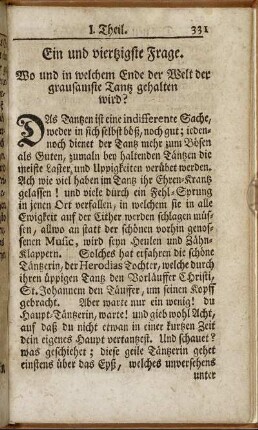 I. Theil. 331
Ein und viertzigste Frage.
Wo und in welchem Ende der Welt der
grausamste Tantz gehalten
wird?
DAs Dantzen ist eine indifferente Sache,
weder in sich selbst böß, noch gut; ieden-
noch dienet der Tantz mehr zum Bösen
als Guten, zumaln bey haltenden Täntzen die
meiste Laster, und Uppigkeiten verübet werden.
Ach wie viel haben im Tantz ihr Ehren-Krantz
gelassen! und viele durch ein Fehl-Sprung
in jenen Ort verfallen, in welchem sie in alle
Ewigkeit auf der Cither werden schlagen müs-
sen, allwo an statt der schönen vorhin genos-
senen Music, wird seyn Heulen und Zähn-
Klappern. Solches hat erfahren die schöne
Täntzerin, der Herodias Tochter, welche durch
ihren üppigen Tantz den Vorläuffer Christi,
St. Johannem den Täuffer, um seinen Kopff
gebracht. Aber warte nur ein wenig! du
Haupt-Täntzerin, warte! und gieb wohl Acht,
auf daß du nicht etwan in einer kurtzen Zeit
dein eigenes Haupt vertantzest. Und schauet?
was geschiehet; diese geile Täntzerin gehet
einstens über das Eyß, welches unversehens
unter